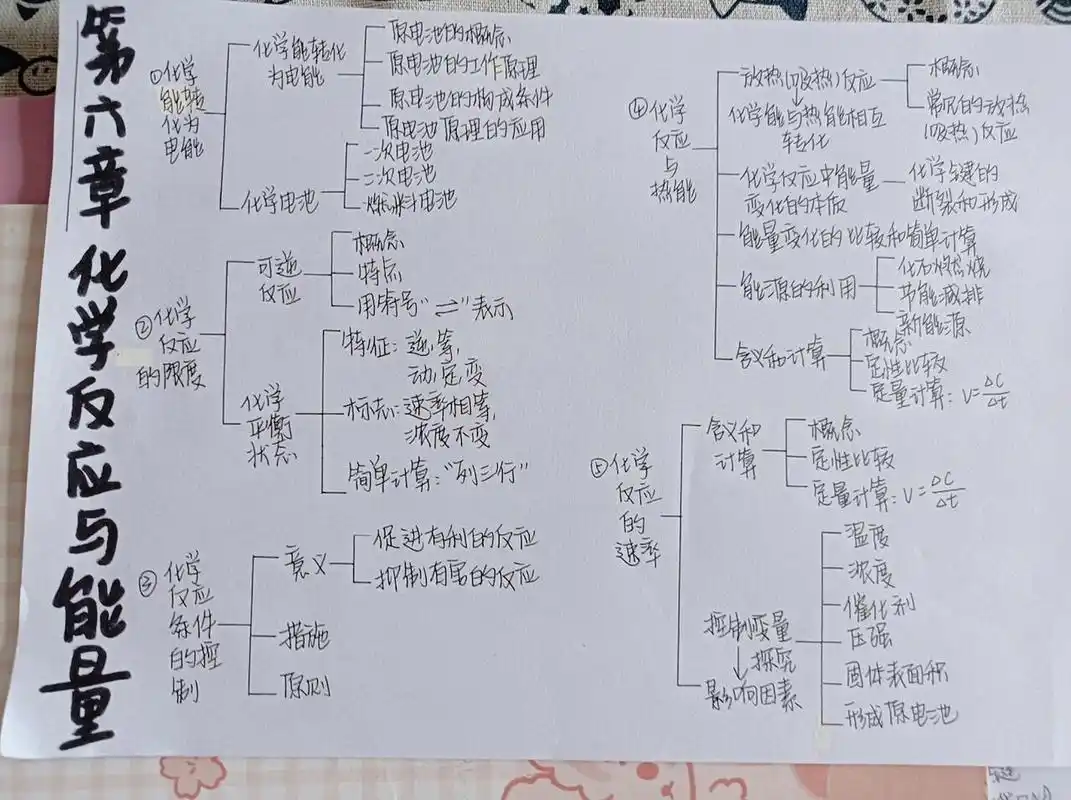 第六章 化学反应与能量
①化学
能转
化为
电能
化学能转化
为电能
原电池的概念
原电池的工作原理
原电池的构成条件
原电池原理的应用
化学电池
一次电池
二次电池
燃料电池
②化学
反应
的限度
可逆
反应
概念
特点
用符号"⇌"表示
化学
平衡
状态
特征：逆，等，
动，定，变
标志：速率相等，
浓度不变
简单计算："列三行"
③化学
反应
条件
的控
制
意义
促进有利的反应
抑制有害的反应
措施
原则
④化学
反应
与
热能
放热(吸热)反应
概念
常见的放热
(吸热)反应
化学能与热能相互
转化
化学反应中能量
变化的本质
化学键的
断裂和形成
能量变化的比较和简单计算
能源的利用
化石燃烧
节能减排
新能源
含义和计算
概念
定性比较
定量计算：V=ΔC/Δt
⑤化学
反应
的
速率
含义和
计算
概念
定性比较
定量计算：V=ΔC/Δt
控制变量
↓探究
影响因素
温度
浓度
催化剂
压强
固体表面积
形成原电池